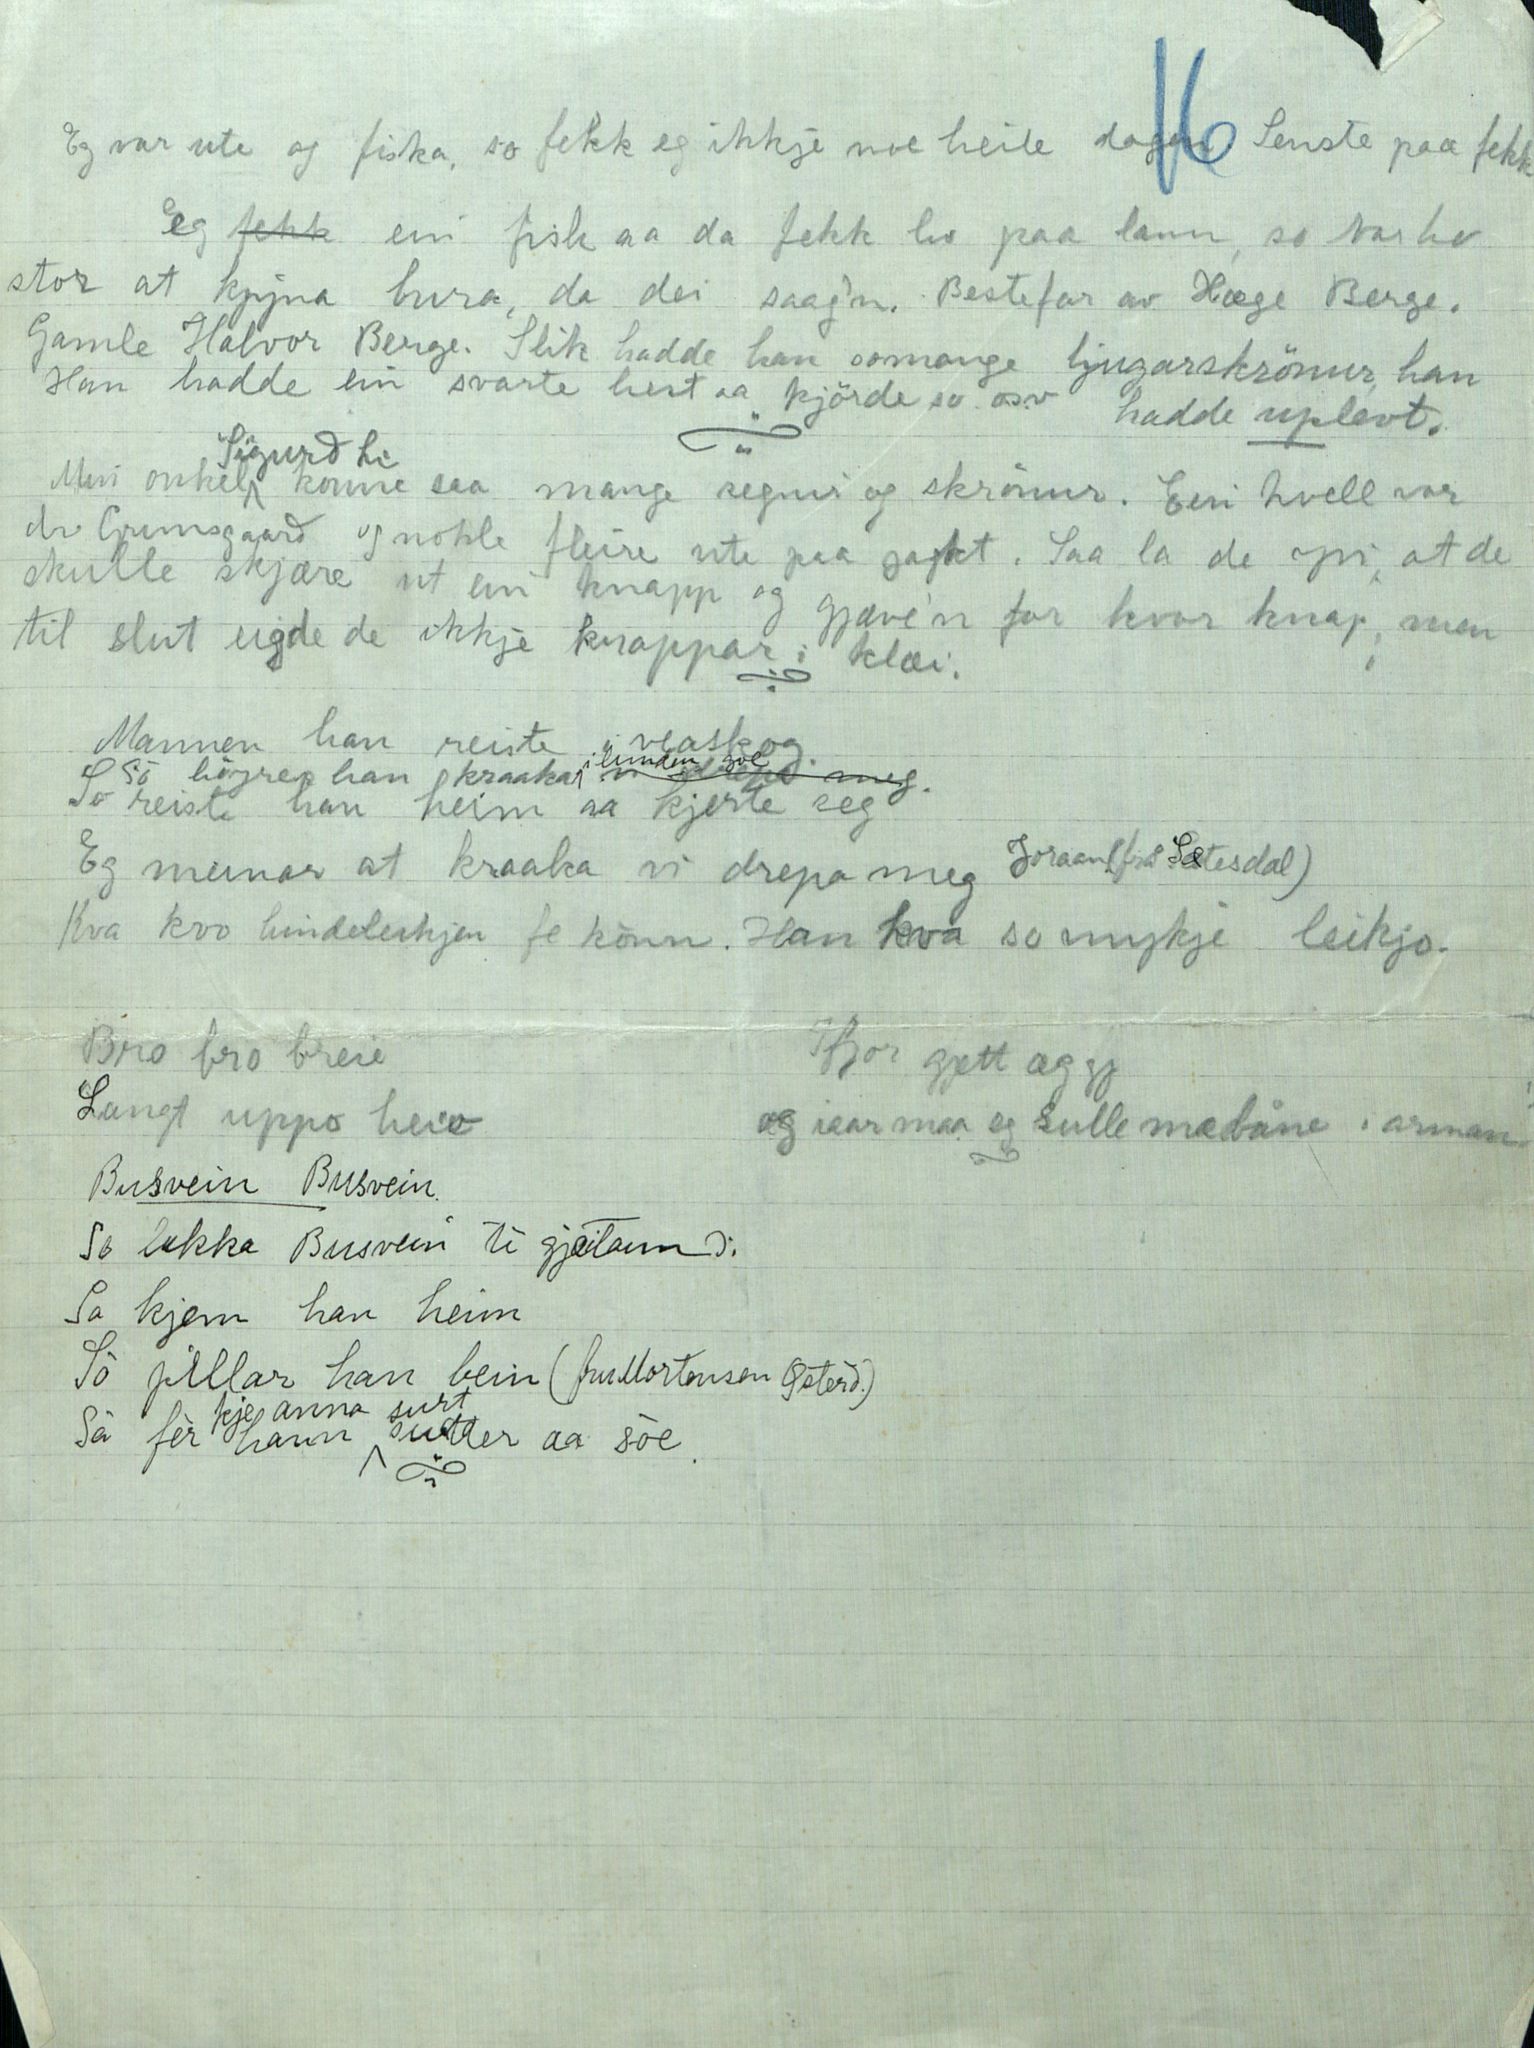 16
Eg var ute og fiska, so fekk eg ikkje noe heile dagen Senste paa fekk
Eg fekk ein fisk aa da fekk ho paa lann, so var ho
stor at kyjna bura, da dei saag'n. Bestefar av Hæge Berge.
Gamle Halvor Berge. Slik hadde han somange ljugarskrönur, han
hadde uplevt.
Han hadde ein svarte hest aa kjörde so osv
Sigurd Li
Min onkel konne saa mange segnir og skrönur. Ein kvell var
dr Grimsgaard og nokle fleire ute paa jagkt. Saa la de ivi, at de
skulle skjære ut ein knapp og gjæve'n for kvor knap, men
til slut eigde de ikkje knappar i klæi.
Mannen han reiste i veaskog.
So höyrer han kraaka i lunden goe meg.
So reiste han heim aa kjerte seg
Eg meinar at kraaka vi drepa meg Joraan (fra Sætesdal)
Kva kvo hindeleikjen fe könn. Han kva so mykje leikjo.
Bro bro breie
Langt uppo heio
Ifjor gjætt æg gj
og iaar maa eg sulle mæ båne i arman
Busvein Busvein.
So lokka Busvein ti gjæitann).
So kjem han heim
So pillar han bein (fru Mortensen Österd.)
kje anna surt
Så fèr hann sutter aa söe.